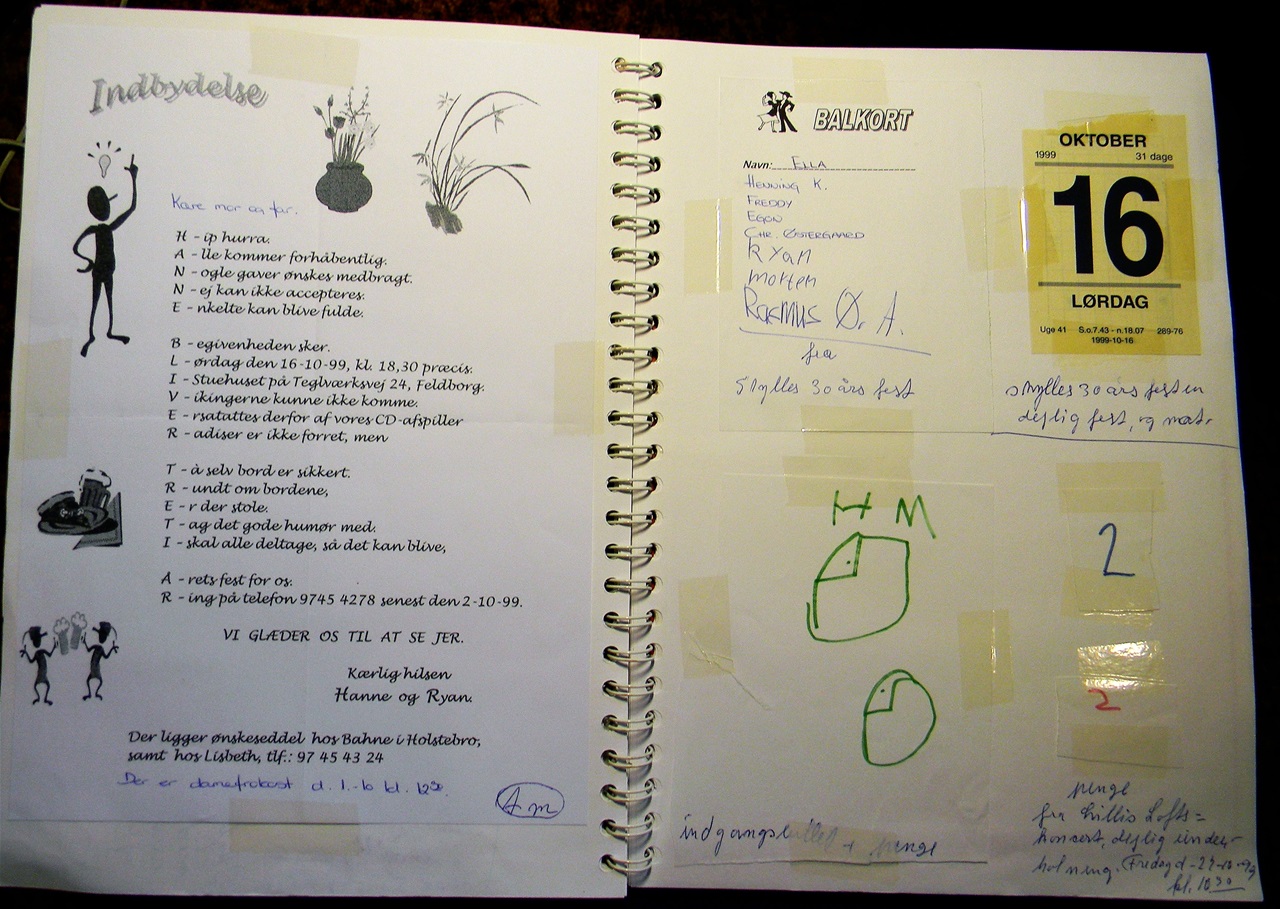 Indbydelse
Kære mor og far.
H - ip hurra.
A - lle kommer forhåbentlig.
N - ogle gaver ønskes medbragt.
N - ej kan ikke accepteres.
E - nkelte kan blive fulde.
B - egivenheden sker.
L - ørdag den 16-10-99, kl. 18,30 præcis.
I - Stuehuset på Teglværksvej 24, Feldborg.
V - ikingerne kunne ikke komme.
E - rsatattes derfor af vores CD-afspiller
R - adiser er ikke forret, men
T - à selv bord er sikkert.
R - undt om bordene,
E - r der stole.
T - ag det gode humør med.
I - skal alle deltage, så det kan blive,
A - rets fest for os.
R - ing på telefon 9745 4278 senest den 2-10-99.
VI GLÆDER OS TIL AT SE JER.
Kærlig hilsen
Hanne og Ryan.
Der ligger ønskeseddel hos Bahne i Holstebro,
samt hos Lisbeth, tlf.: 97 45 43 24
Der er damefrokost d. kl. 12
BALKORT
Navn: ELLA
HENNING K.
FREDDY
EGON
CHR. ØSTERGAARD
Ryan
morten
RASMUS Ø. A.
fra
30 års fest
OKTOBER
1999 31 dage
16
LØRDAG
Uge 41 S.o.7.43 - n.18.07 289-76
1999-10-16
30 års fest en
dejlig fest, og mat.
H M
2
2
indgangsbillet + penge
penge
fra Lofts=
koncert, dejlig under-
holdning. Fredag d
kl.